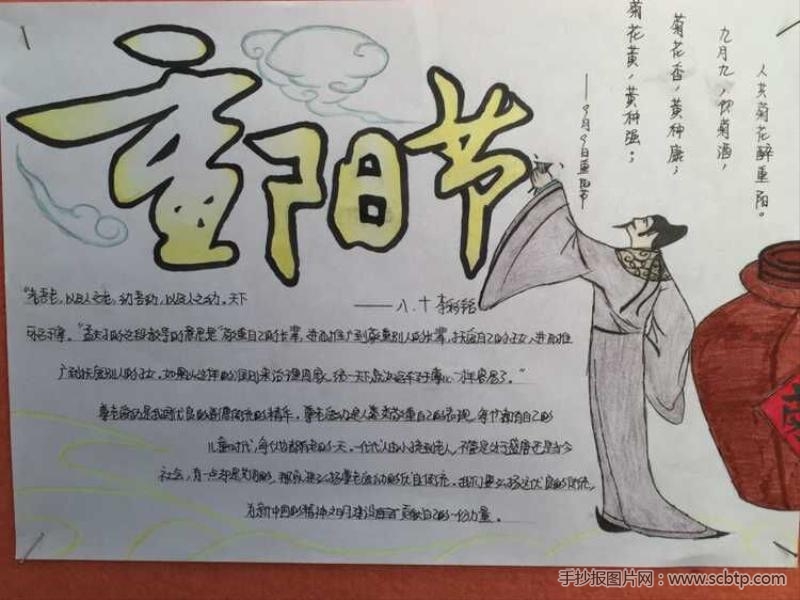 重阳节
人共菊花醉重阳。
九月九,饮菊酒,
菊花香,黄种康;
菊花黄,黄种强;
——9月9日重阳节
——八.十 李
"老吾老,以及人之老,幼吾幼,以及人之幼。天下
可运于掌。"孟夫子的这段教导的意思是"敬重自己的长辈,进而推广到敬重别人的长辈,抚爱自己的子女,进而推
广到抚爱别人的子女,如果以这样的 则来治理国家,统一天下 "
尊老爱幼是我国优良的 传统的精华,尊老爱幼是人类敬重自己的表现,每个都有自己的
儿童时代,每个人都有老的一天,一代代人由小孩到老人,不管是处于盛唐还是当今
社会,有一点却是共同的,那就是弘扬尊老爱幼的优良传统,我们要弘扬这优良的传统,
为新中国的精神文明建设 贡献自己的一份力量。
手抄报图片网:www.scbtp.com